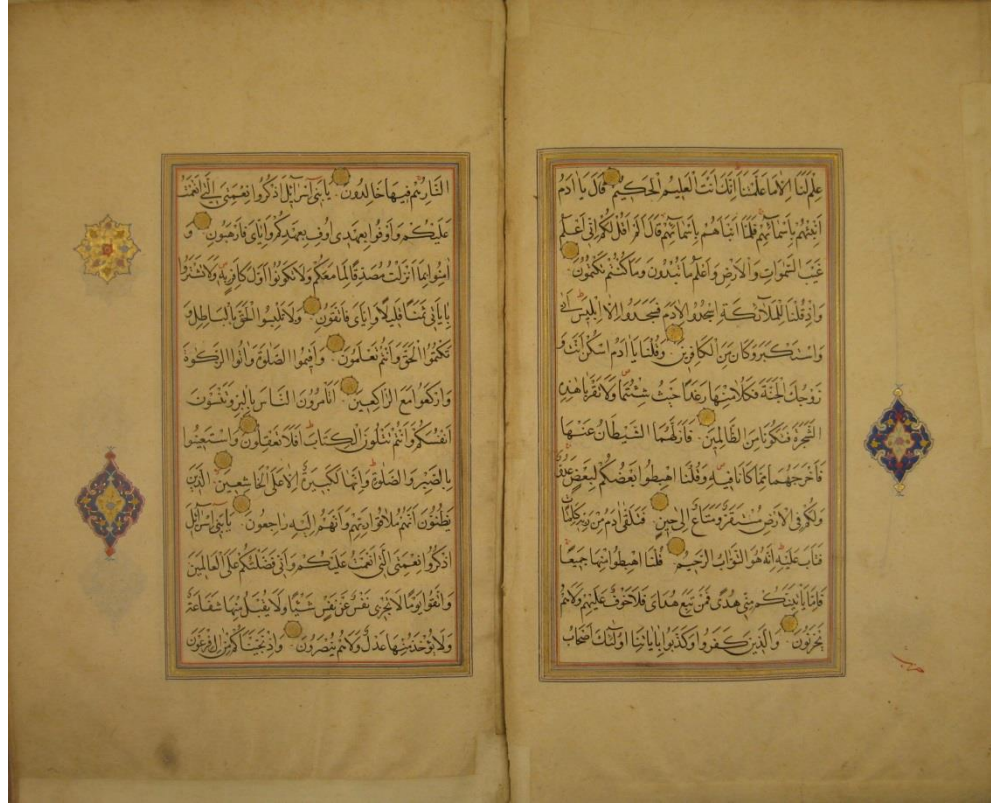 عِلْمَ لَنَا اِلَّا مَا عَلَّمْتَنَا اِنَّكَ اَنْتَ الْعَلِيمُ الْحَكِيمُ قَالَ يَا اٰدَمُ
اَنْبِئْهُمْ بِاَسْمَائِهِمْ فَلَمَّا اَنْبَاَهُمْ بِاَسْمَائِهِمْ قَالَ اَلَمْ اَقُلْ لَكُمْ اِنِّي اَعْلَمُ
غَيْبَ السَّمٰوَاتِ وَالْاَرْضِ وَاَعْلَمُ مَا تُبْدُونَ وَمَا كُنْتُمْ تَكْتُمُونَ
وَاِذْ قُلْنَا لِلْمَلَائِكَةِ اسْجُدُوا لِاٰدَمَ فَسَجَدُوا اِلَّا اِبْلِيسَ اَبٰى
وَاسْتَكْبَرَ وَكَانَ مِنَ الْكَافِرِينَ وَقُلْنَا يَا اٰدَمُ اسْكُنْ اَنْتَ وَ
زَوْجُكَ الْجَنَّةَ فَكُلَا مِنْهَا رَغَدًا حَيْثُ شِئْتُمَا وَلَا تَقْرَبَا هٰذِهِ
الشَّجَرَةَ فَتَكُونَا مِنَ الظَّالِمِينَ فَاَزَلَّهُمَا الشَّيْطَانُ عَنْهَا
فَاَخْرَجَهُمَا مِمَّا كَانَا فِيهِ وَقُلْنَا اهْبِطُوا بَعْضُكُمْ لِبَعْضٍ عَدُوٌّ
وَلَكُمْ فِي الْاَرْضِ مُسْتَقَرٌّ وَمَتَاعٌ اِلٰى حِينٍ فَتَلَقّٰى اٰدَمُ مِنْ رَبِّهِ كَلِمَاتٍ
فَتَابَ عَلَيْهِ اِنَّهُ هُوَ التَّوَّابُ الرَّحِيمُ قُلْنَا اهْبِطُوا مِنْهَا جَمِيعًا
فَاِمَّا يَاْتِيَنَّكُمْ مِنِّي هُدًى فَمَنْ تَبِعَ هُدَايَ فَلَا خَوْفٌ عَلَيْهِمْ وَلَا هُمْ
يَحْزَنُونَ وَالَّذِينَ كَفَرُوا وَكَذَّبُوا بِاٰيَاتِنَا اُولٰئِكَ اَصْحَابُ
النَّارِ هُمْ فِيهَا خَالِدُونَ يَا بَنِي اِسْرَائِيلَ اذْكُرُوا نِعْمَتِيَ الَّتِي اَنْعَمْتُ
عَلَيْكُمْ وَاَوْفُوا بِعَهْدِي اُوفِ بِعَهْدِكُمْ وَاِيَّايَ فَارْهَبُونِ وَ
اٰمِنُوا بِمَا اَنْزَلْتُ مُصَدِّقًا لِمَا مَعَكُمْ وَلَا تَكُونُوا اَوَّلَ كَافِرٍ بِهِ وَلَا تَشْتَرُوا
بِاٰيَاتِي ثَمَنًا قَلِيلًا وَاِيَّايَ فَاتَّقُونِ وَلَا تَلْبِسُوا الْحَقَّ بِالْبَاطِلِ وَ
تَكْتُمُوا الْحَقَّ وَاَنْتُمْ تَعْلَمُونَ وَاَقِيمُوا الصَّلٰوةَ وَاٰتُوا الزَّكٰوةَ
وَارْكَعُوا مَعَ الرَّاكِعِينَ اَتَاْمُرُونَ النَّاسَ بِالْبِرِّ وَتَنْسَوْنَ
اَنْفُسَكُمْ وَاَنْتُمْ تَتْلُونَ الْكِتَابَ اَفَلَا تَعْقِلُونَ وَاسْتَعِينُوا
بِالصَّبْرِ وَالصَّلٰوةِ وَاِنَّهَا لَكَبِيرَةٌ اِلَّا عَلَى الْخَاشِعِينَ الَّذِينَ
يَظُنُّونَ اَنَّهُمْ مُلَاقُوا رَبِّهِمْ وَاَنَّهُمْ اِلَيْهِ رَاجِعُونَ يَا بَنِي اِسْرَائِيلَ
اذْكُرُوا نِعْمَتِيَ الَّتِي اَنْعَمْتُ عَلَيْكُمْ وَاَنِّي فَضَّلْتُكُمْ عَلَى الْعَالَمِينَ
وَاتَّقُوا يَوْمًا لَا تَجْزِي نَفْسٌ عَنْ نَفْسٍ شَيْئًا وَلَا يُقْبَلُ مِنْهَا شَفَاعَةٌ
وَلَا يُؤْخَذُ مِنْهَا عَدْلٌ وَلَا هُمْ يُنْصَرُونَ وَاِذْ نَجَّيْنَاكُمْ مِنْ اٰلِ فِرْعَوْنَ